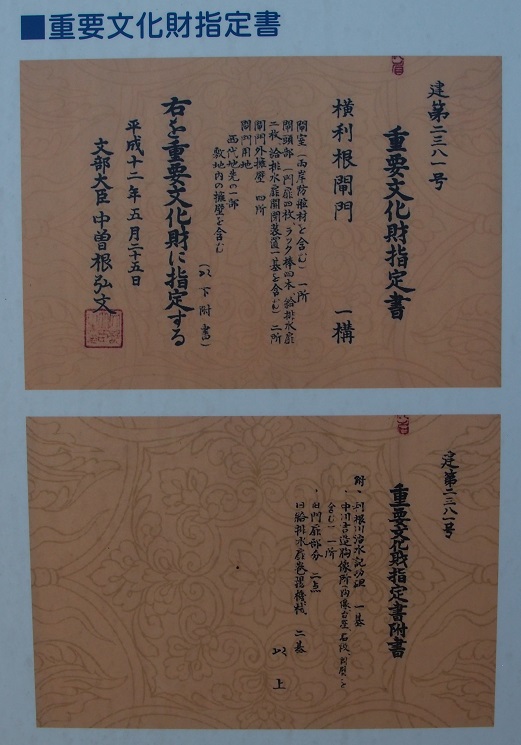 ■重要文化財指定書
建第二三八一号
重要文化財指定書
横利根閘門 一構
閘室(両岸防舷材を含む)一所
閘頭部(門扉四枚、ラック棒四本、給排水扉
二枚、給排水扉開閉装置一基を含む)二所
閘門外擁壁 四所
閘門用地
西代地先の一部
敷地内の擁壁を含む
(以下附書)
右を重要文化財に指定する
平成十二年五月二十五日
文部大臣 中曽根弘文
建第二三八一号
重要文化財指定書附書
附、利根川治水記功碑 一基
・中川吉造胸像所(胸像台座、石段、囲壁を
含む)一所
・旧門扉部分 二点
旧給排水扉巻揚機械 二基
以上